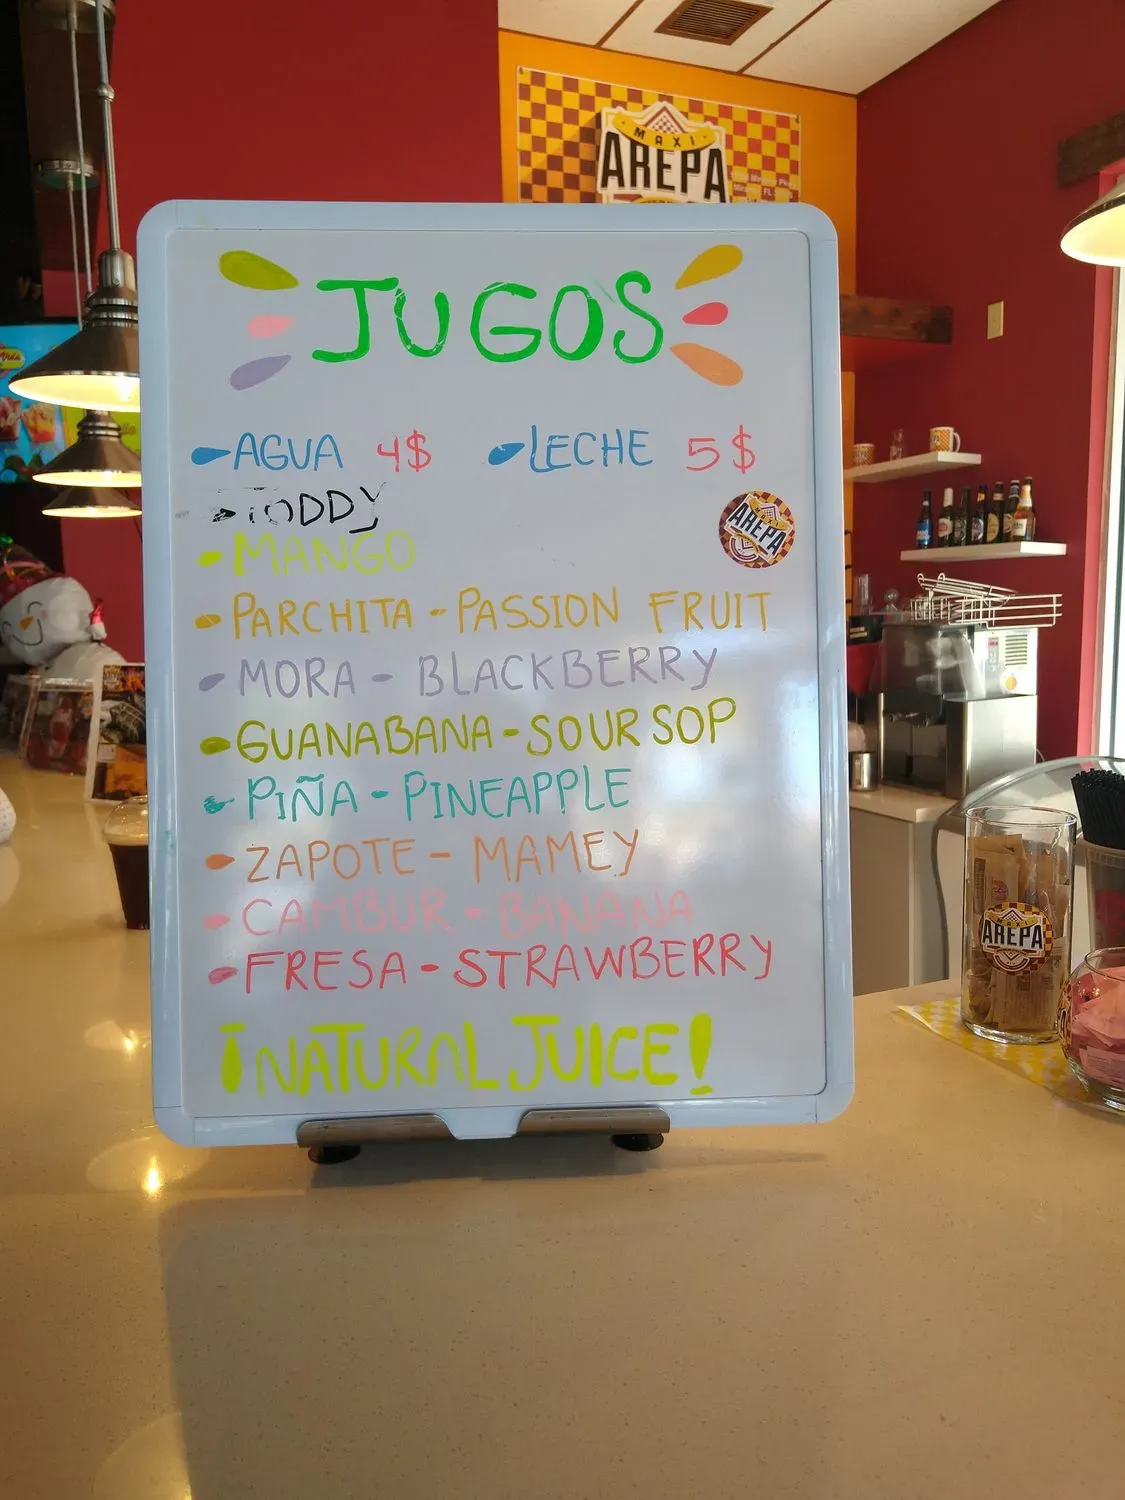 MAXI
AREPA
JUGOS
AGUA 4$ LECHE 5$
TODDY
MANGO
AREPA
PARCHITA - PASSION FRUIT
MORA - BLACKBERRY
GUANABANA - SOUR SOP
PIÑA - PINEAPPLE
ZAPOTE - MAMEY
CAMBUR - BANANA
FRESA - STRAWBERRY
¡NATURAL JUICE!
AREPA